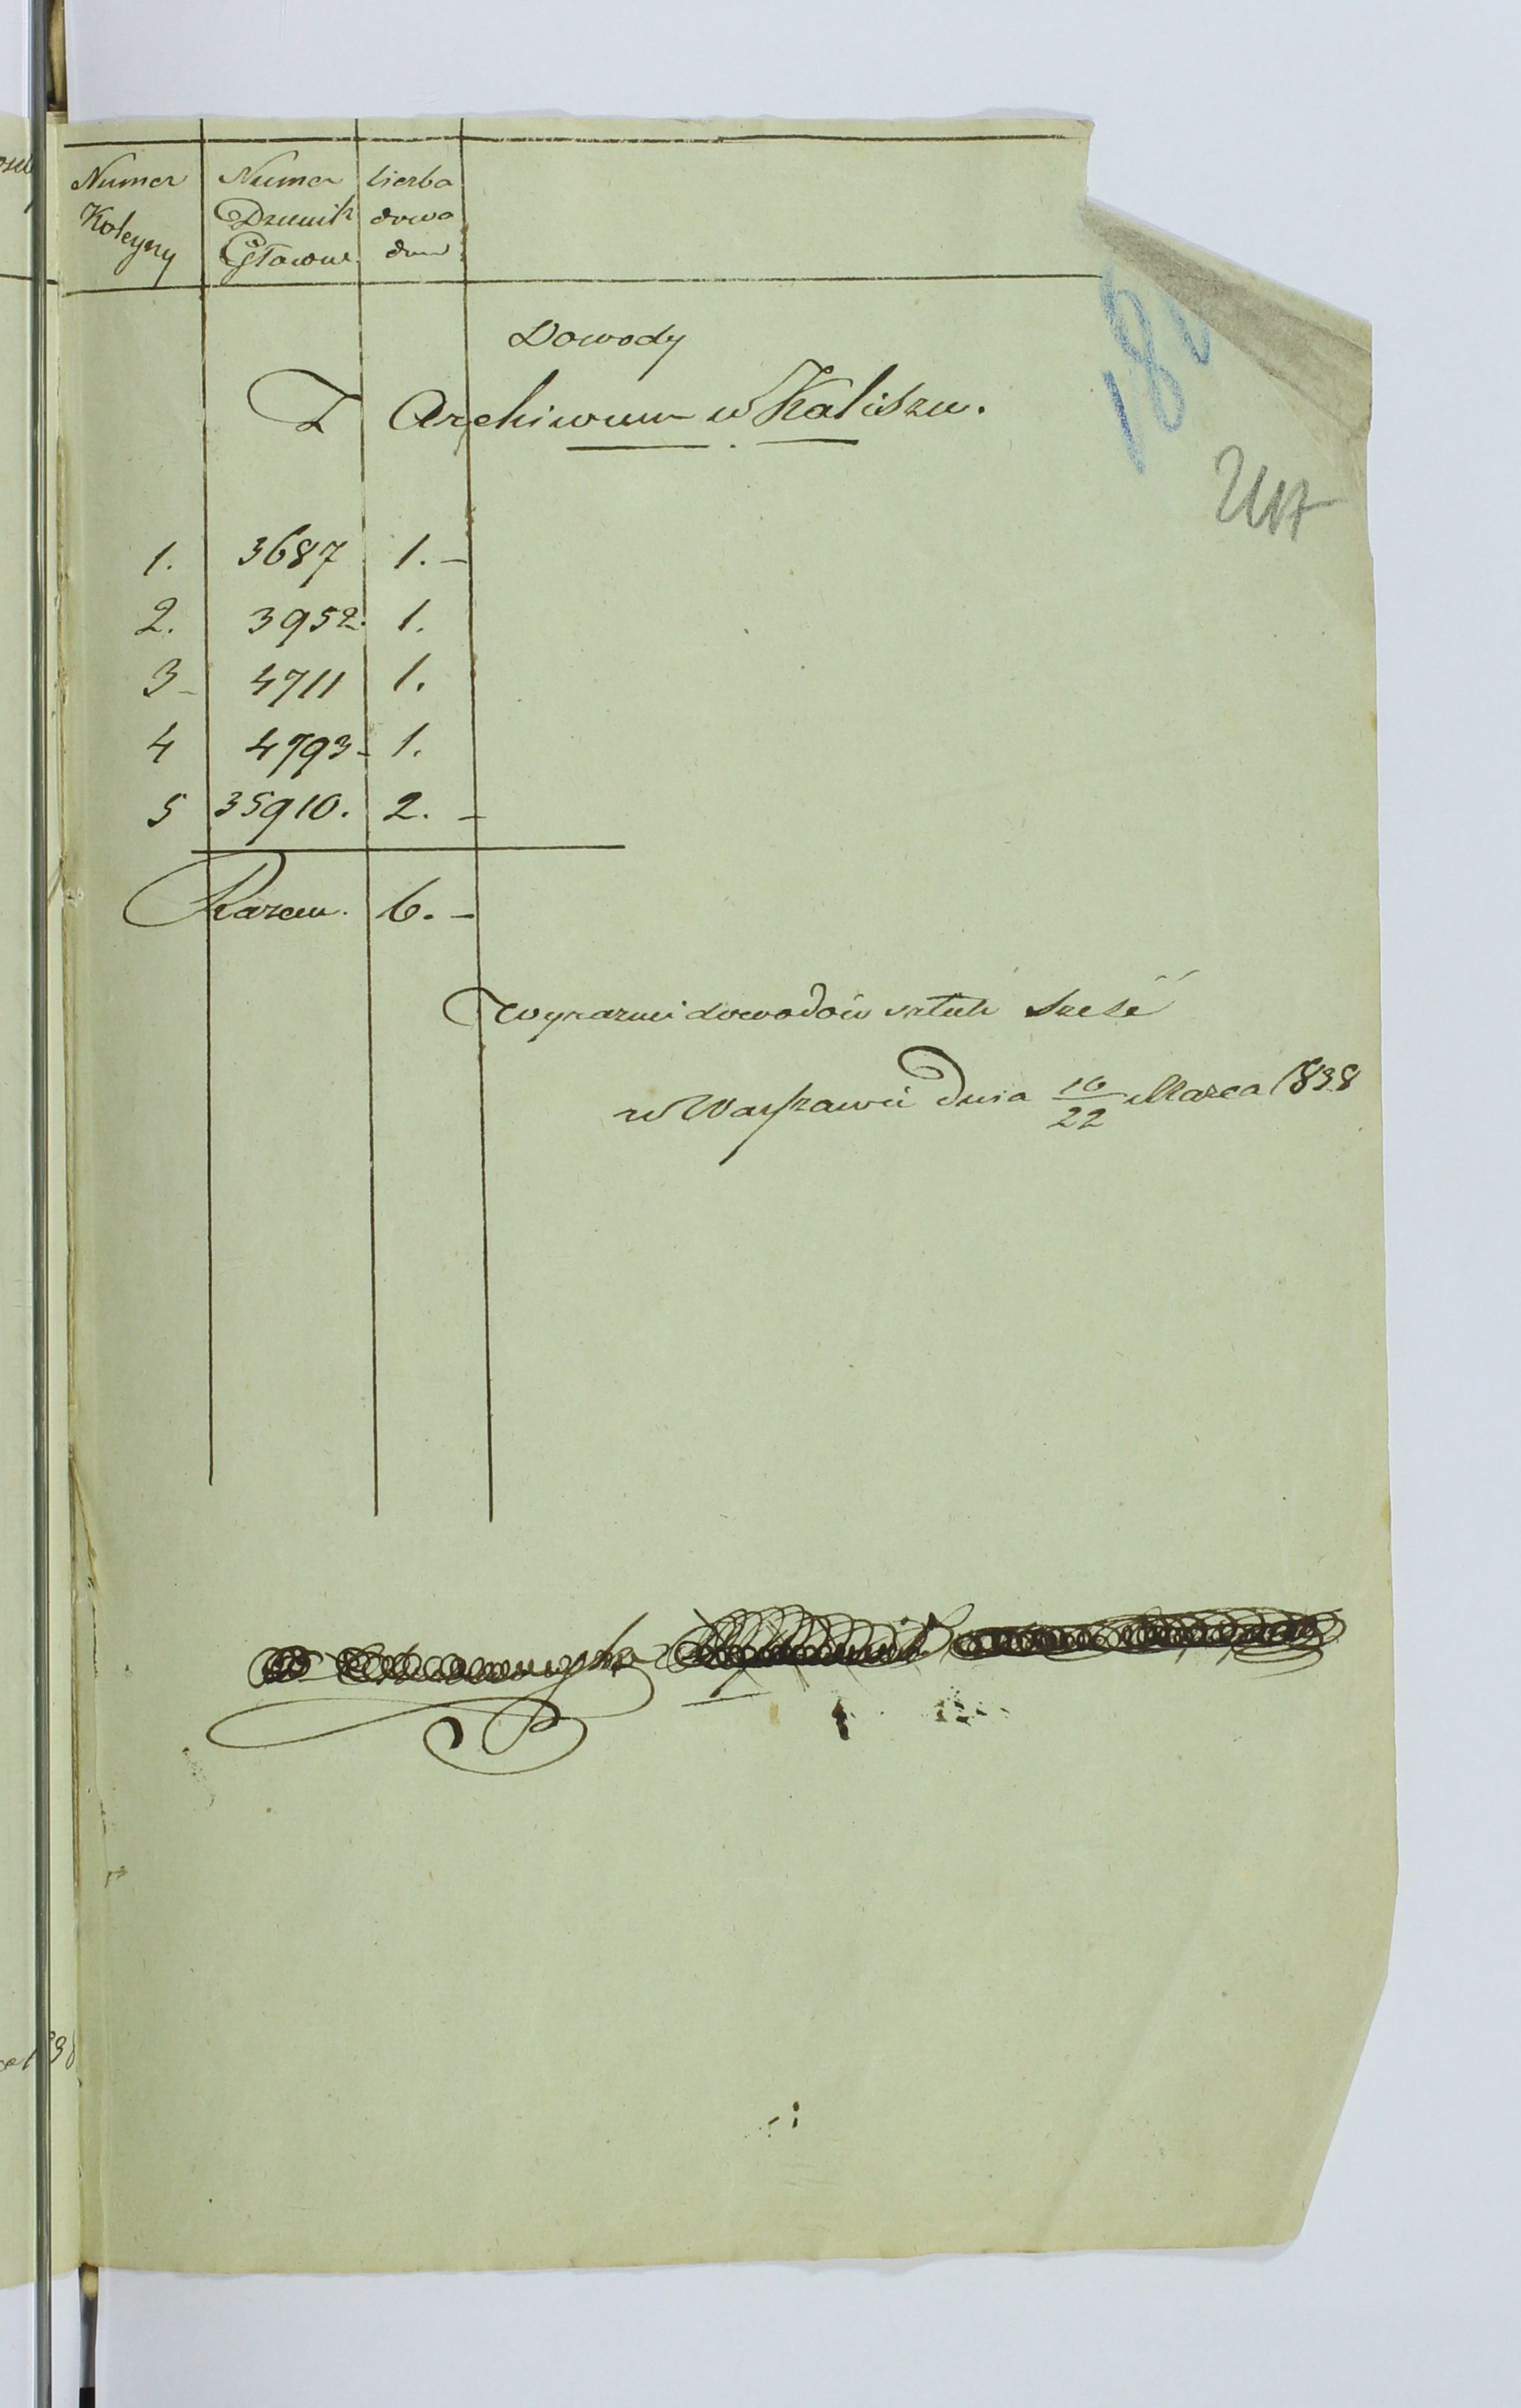 Numer Numer liczba
Koleyny Dzienik dowo
Główne dow
Dowody
Z Archiwum w Kaliszu.
1. 3687 1.-
2. 3952. 1.
3- 4711 1.
4 4793- 1.
5 35910. 2.-
Razem. 6.-
Wyraznie dowodów sztuk sześć
w Warszawie dnia 10/22 Marca 1838